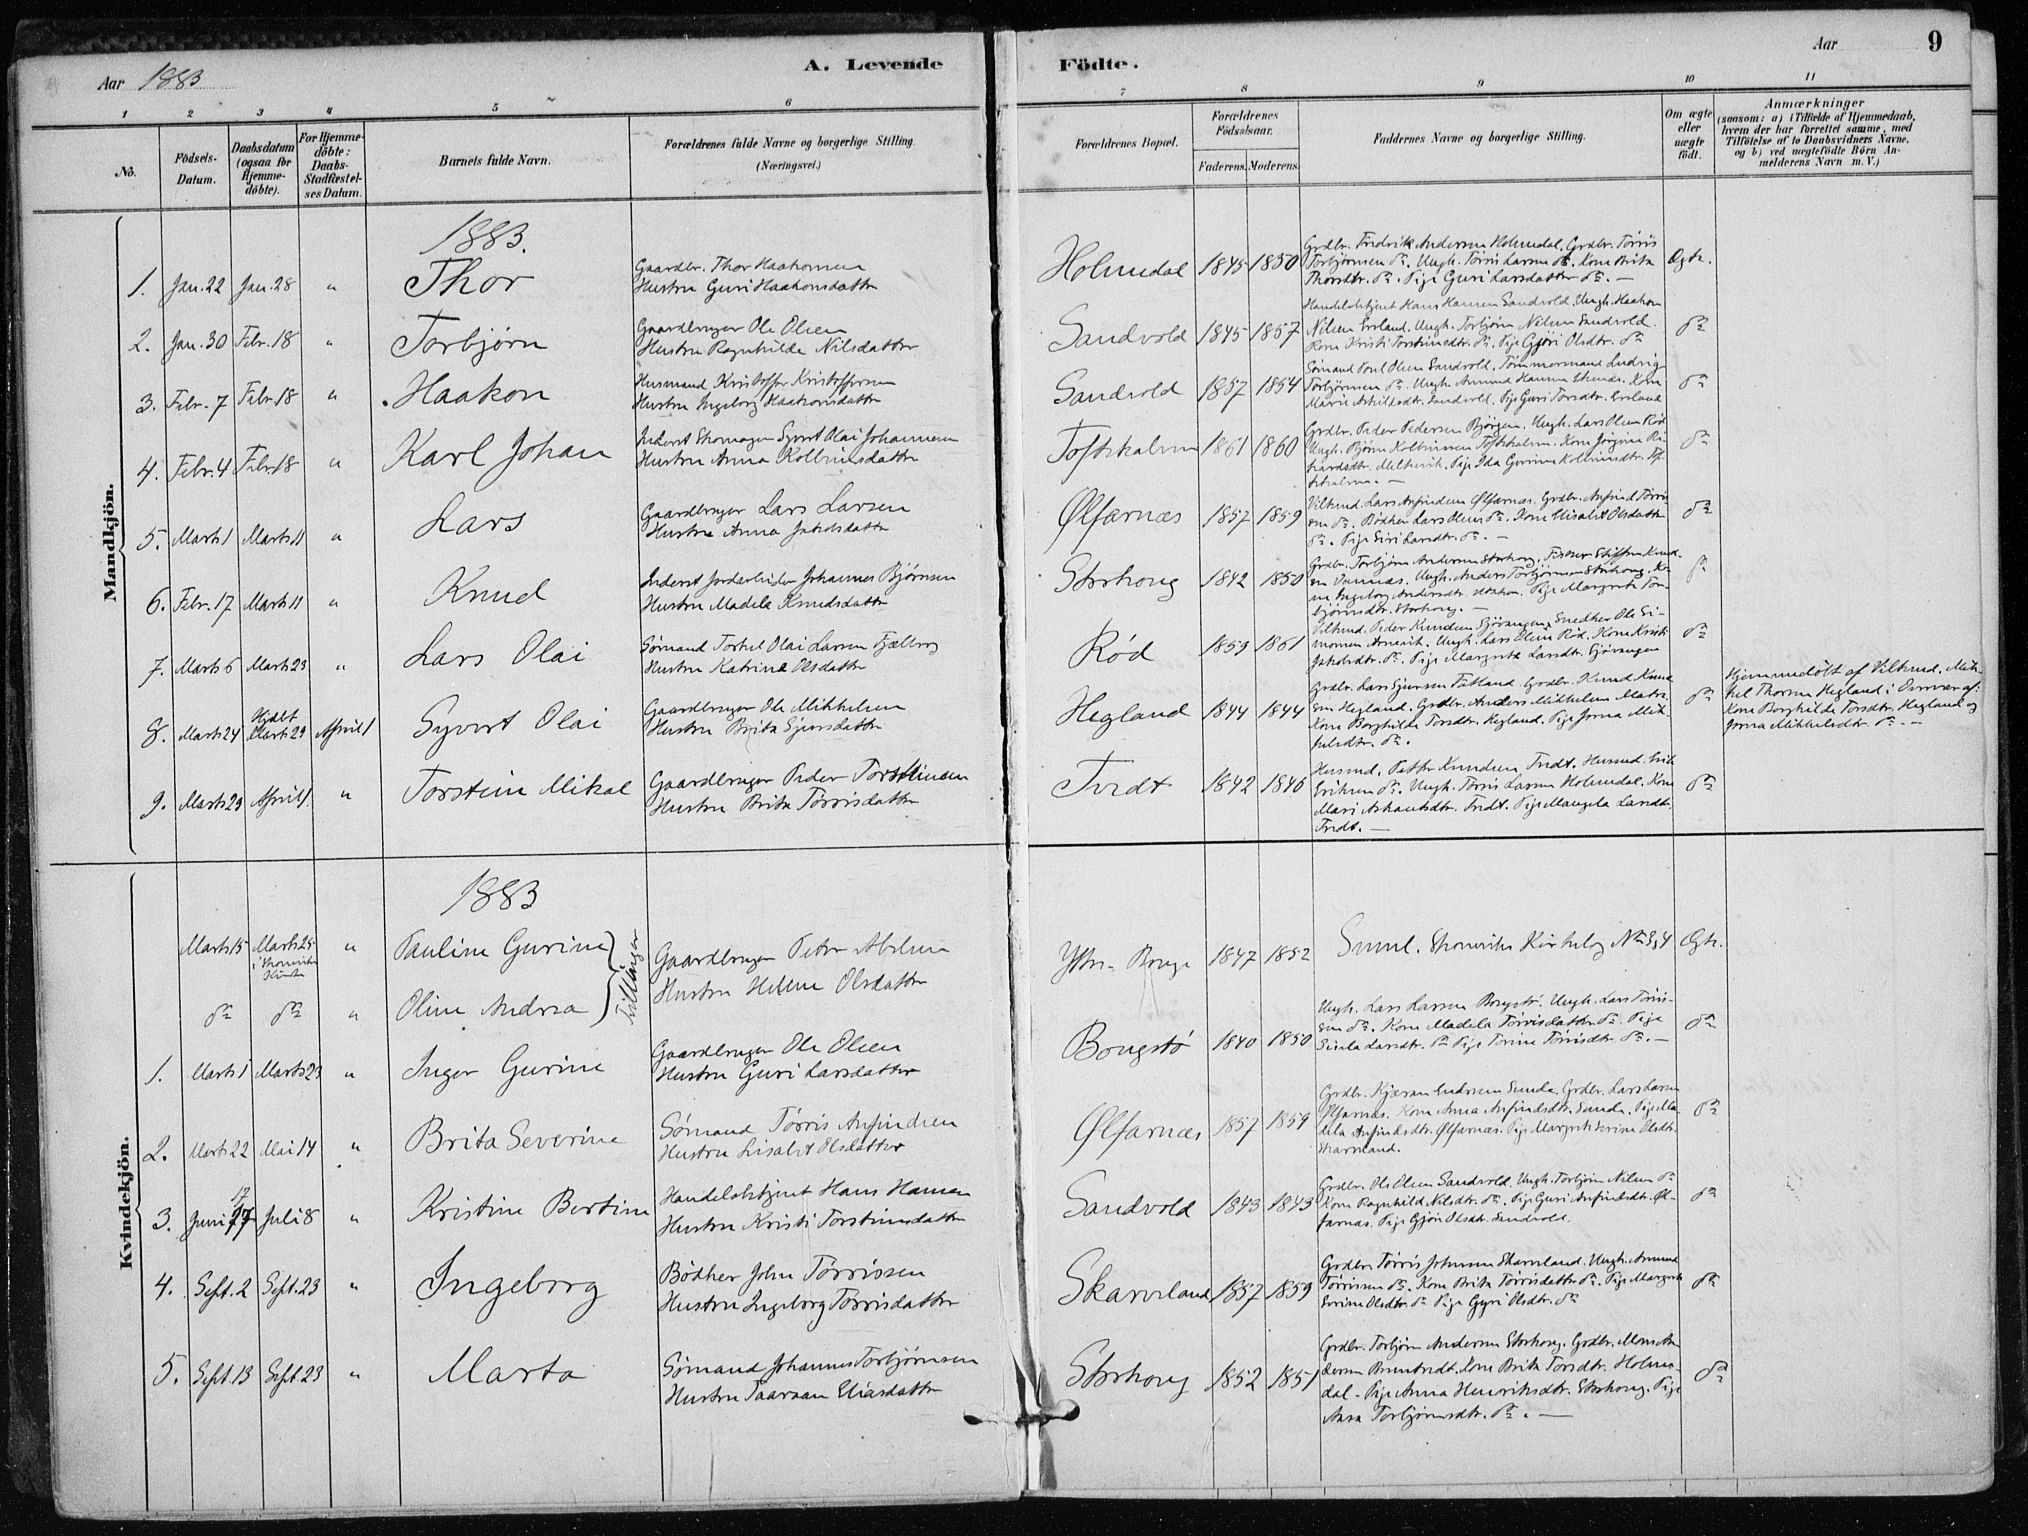 Aar 1883
A. Levende
Födte.
Aar
9
1 2 3 4 5 6 7 8 9 10 11
No.
Födsels-
Datum.
Daabsdatum
(ogsaa for
Hjemme-
döbte).
For Hjemme-
döbte:
Daabs-
Stadfæstel-
ses Datum.
Barnets fulde Navn.
Forældrenes fulde Navne og borgerlige Stilling.
(Næringsvei.)
Forældrenes Bopæl.
Forældrenes
Födselsaar.
Faderens. Moderens.
Faddernes Navne og borgerlige Stilling.
Om ægte
eller
uægte
födt.
Anmærkninger
(saasom: a) i Tilfælde af Hjemmedaab,
hvem der har forrettet samme, med
Tilföielse af to Daabsvidners Navne,
og b) ved uægtefödte Börn An-
melderens Navn m. V.)
Mandkjön.
1883.
1. Jan. 22 Jan. 28 " Thor
Gaardbr. Thor Haakonsen
Hustru Guri Haakonsdatter
Holmedal 1845 1850
Grdbr. Fredrik Andersen Holmedal. Grdbr. Tørris
Torbjørnsen do. Ungk. Tørris Larsen do. Kone Brita
Thorsdtr. do. Pige Guri Larsdatter do. —
Ægte.
2. Jan. 30 Febr. 18 " Torbjørn
Gaardbruger Ole Olsen
Hustru Ragnhilde Nilsdatter
Sandvold 1845 1857
Handelsbetjent Hans Hansen Sandvold. Ungk. Haakon
Nilsen Ersland. Ungk. Torbjørn Nilsen Sandvold.
Kone Kristi Torsteinsdtr. do. Pige Gjøri Olsdtr. do
do
3. Febr. 7 Febr. 18 " Haakon
Husmand Kristoffer Kristoffersen
Hustru Ingeborg Haakonsdatter
Sandvold 1857 1854
Sømand Poul Olsen Sandvold. Tømmermand Ludvig
Torbjørnsen do. Ungk. Amund Hansen Kone
Marie Sandvold. Pige Guri Torsdtr. Ersland
do
4. Febr. 4 Febr. 18 " Karl Johan
Inderst Skomager Syvert Olai Johannesen
Hustru Anna Kolbeinsdatter
1861 1860
Grdbr. Peder Pedersen Ungk. Lars Olsen Rød
Ungk. Bjørn Kolbeinsen Kone Jørgine
Pige Ida Gurine Kolbeinsdtr.
do
5. Marts 1 Marts 11 " Lars
Gaardbruger Lars Larsen
Hustru Anna Jakobsdatter
Ølfarnæs 1857 1859
Lars Anfindsen Ølfarnæs. Grdbr. Anfind Tørris-
sen do. Bødker Lars Olsen do. Kone Lisabet Olsdatter
do. Pige Siri Larsdtr. do. —
do
6. Febr. 17 Marts 11 " Knud
Inderst Jordarbeider Johannes Bjørnsen
Hustru Madela Knudsdatter
Storhoug 1842 1850
Grdbr. Torbjørn Andersen Storhoug. Knud-
sen Ungk. Anders Torbjørnsen Storhoug. Ko-
ne Ingeborg Andersdtr. Pige Margreta Tor-
bjørnsdtr. Storhoug. —
do
7. Marts 6 Marts 23 " Lars Olai
Sømand Torkel Olai Larsen Fjelberg
Hustru Katrine Olsdatter
Rød 1859 1861
Peder Knudsen Snedker Ole Si-
monsen Ungk. Lars Olsen Rød. Kone Kristi
Jakobsdtr. do. Pige Margreta Larsdtr.
do
8. Marts 24 Hjdbt Marts 29 April 1 Syvert Olai
Gaardbruger Ole Mikkelsen
Hustru Brita Sjursdatter
Hegland 1844 1844
Grdbr. Lars Sjursen Grdbr. Knud Knud-
sen Hegland. Grdbr. Anders Mikkelsen
Kone Borghilde Torsdtr. Hegland. Pige Jorina Mik-
kelsdtr. do.
do
Hjemmedöbt af Mik-
kel Thorsen Hegland i Overvær af:
Kone Borghilde Torsdtr. Hegland og
Jorina Mikkelsdtr. do. —
9. Marts 23 April 1. " Torstein Mikal
Gaardbruger Peder Torsteinsen
Hustru Brita Tørrisdatter
Tvedt 1842 1846
Husmd. Petter Knudsen Tvedt. Husmd. Erik
Eriksen do. Ungk. Tørris Larsen Holmedal. Kone
Mari Tvedt. Pige Larsdtr.
Tvedt. —
do
Kvindekjön.
1883
Marts 15 Marts 25 " Pauline Gurine
i Skonevik
Kirke
do do " Oline Andrea
Tvillinger
Gaardbruger Peter Abelsen
Hustru Helene Olsdatter
Ytre- Borge 1847 1852
Smml. Skonevik Kirkebog No 3, 4
Ægte.
1. Marts 1 Marts 23 " Inger Gurine
Gaardbruger Ole Olsen
Hustru Guri Larsdatter
Bougstø 1840 1850
Ungk. Lars Larsen Bougstø. Ungk. Lars Tørris-
sen do. Kone Madela Tørrisdatter do. Pige
Larsdtr. do Pige Torine Tørrisdtr. do. —
do
2. Marts 22 Mai 14 " Brita Severine
Sømand Tørris Anfindsen
Hustru Lisabet Olsdatter
Ølfarnæs 1857 1859
Grdbr. Endresen Sunde. Grdbr. Lars Larsen
Ølfarnæs. Kone Anna Anfindsdtr. Sunde. Pige Ma-
dela Anfindsdtr. Ølfarnæs. Pige Margreta Serine Olsdtr.
do
3. Juni 17 17 Juli 8 " Kristine Bertine
Handelsbetjent Hans Hansen
Hustru Kristi Torsteinsdatter
Sandvold 1843 1843
Grdbr. Ole Olsen Sandvold. Ungk. Torbjørn Nilsen do
Kone Ragnhild Nilsdtr. do. Pige Guri Anfindsdtr. Øl-
farnæs. Pige Gjøri Olsdtr. Sandvold.
do
4. Sept. 2 Sept. 23 " Ingeborg
Bødker John Tørrissen
Hustru Ingeborg Tørrisdatter
Skarveland 1857 1859
Grdbr. Tørris Johnsen Skarveland. Ungk. Amund
Tørrissen do. Kone Brita Tørrisdatter do. Pige Margreta
Serine Olsdtr. do Pige Gyri Olsdtr. do
do
5. Sept. 13 Sept. 23 " Marta
Sømand Johannes Torbjørnsen
Hustru Taaraan Eliasdatter
Storhoug 1852 1851
Grdbr. Torbjørn Andersen Storhoug. Grdbr. Mons An-
dersen Kone Brita Torsdtr. Holme-
dal. Pige Anna Henriksdtr. Storhoug. Pige
Aasa Torbjørnsdtr. do. —
do